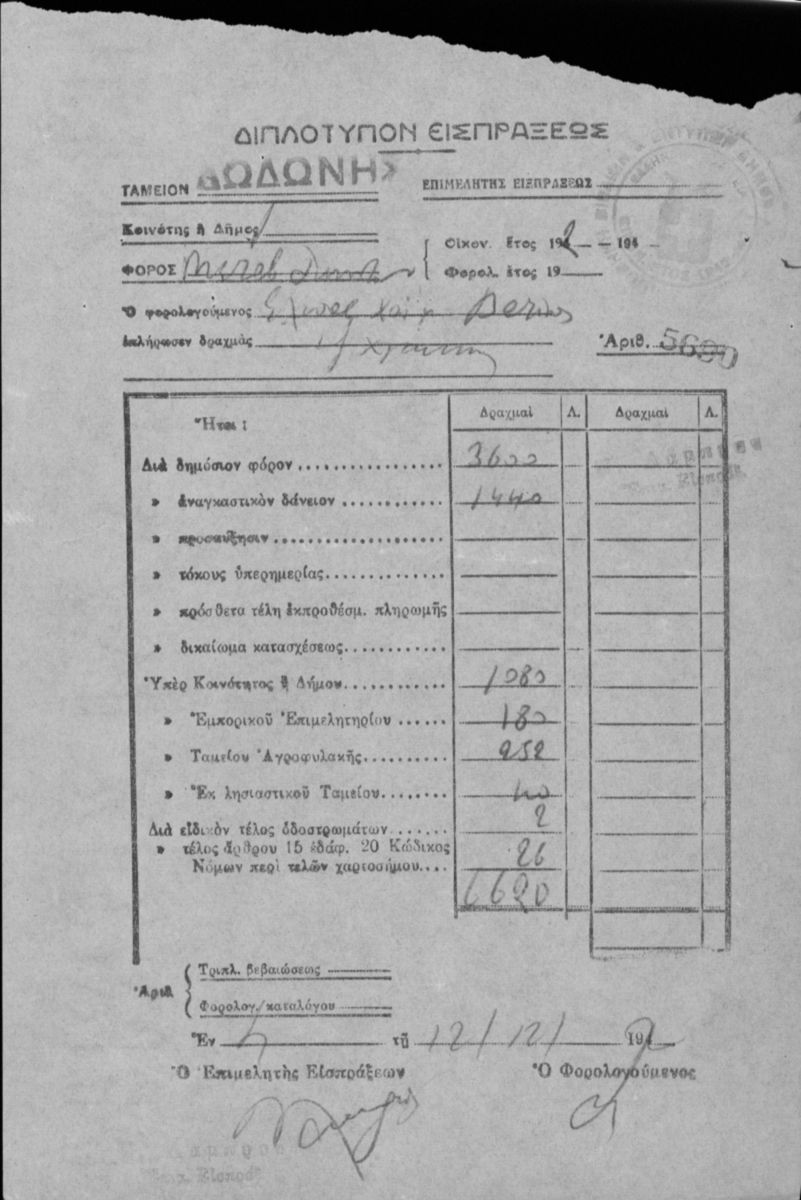 ΔΙΠΛΟΤΥΠΟΝ ΕΙΣΠΡΑΞΕΩΣ
ΤΑΜΕΙΟΝ ΔΩΔΩΝΗΣ ΕΠΙΜΕΛΗΤΗΣ ΕΙΣΠΡΑΞΕΩΣ
Κοινότης ἢ Δῆμος
ΦΟΡΟΣ
Οἰκον. ἔτος 1942 - 194
Φορολ. ἔτος 19
Ὁ φορολογούμενος
ἐπλήρωσεν δραχμὰς
Ἀριθ. 5600
Ἤτοι :
Δραχμαὶ Λ. Δραχμαὶ Λ.
Διὰ δημόσιον φόρον ................. 3600
» ἀναγκαστικὸν δάνειον ............ 1440
» προσαύξησιν ....................
» τόκους ὑπερημερίας..............
» πρόσθετα τέλη ἐκπροθέσμ. πληρωμῆς
» δικαίωμα κατασχέσεως............
Ὑπὲρ Κοινότητος ἢ Δήμου........... 1080
» Ἐμπορικοῦ Ἐπιμελητηρίου ...... 180
» Ταμείου Ἀγροφυλακῆς.......... 252
» Ἐκ λησιαστικοῦ Ταμείου........ 40
Διὰ εἰδικὸν τέλος ὁδοστρωμάτων ...... 2
» τέλος ἄρθρου 15 ἐδάφ. 20 Κώδικος
Νόμων περὶ τελῶν χαρτοσήμου.... 26
6620
Ἀριθ
Τριπλ. βεβαιώσεως
Φορολογ. καταλόγου
Ἐν τῇ 12/12/ 1942
Ὁ Ἐπιμελητὴς Εἰσπράξεων Ὁ Φορολογούμενος